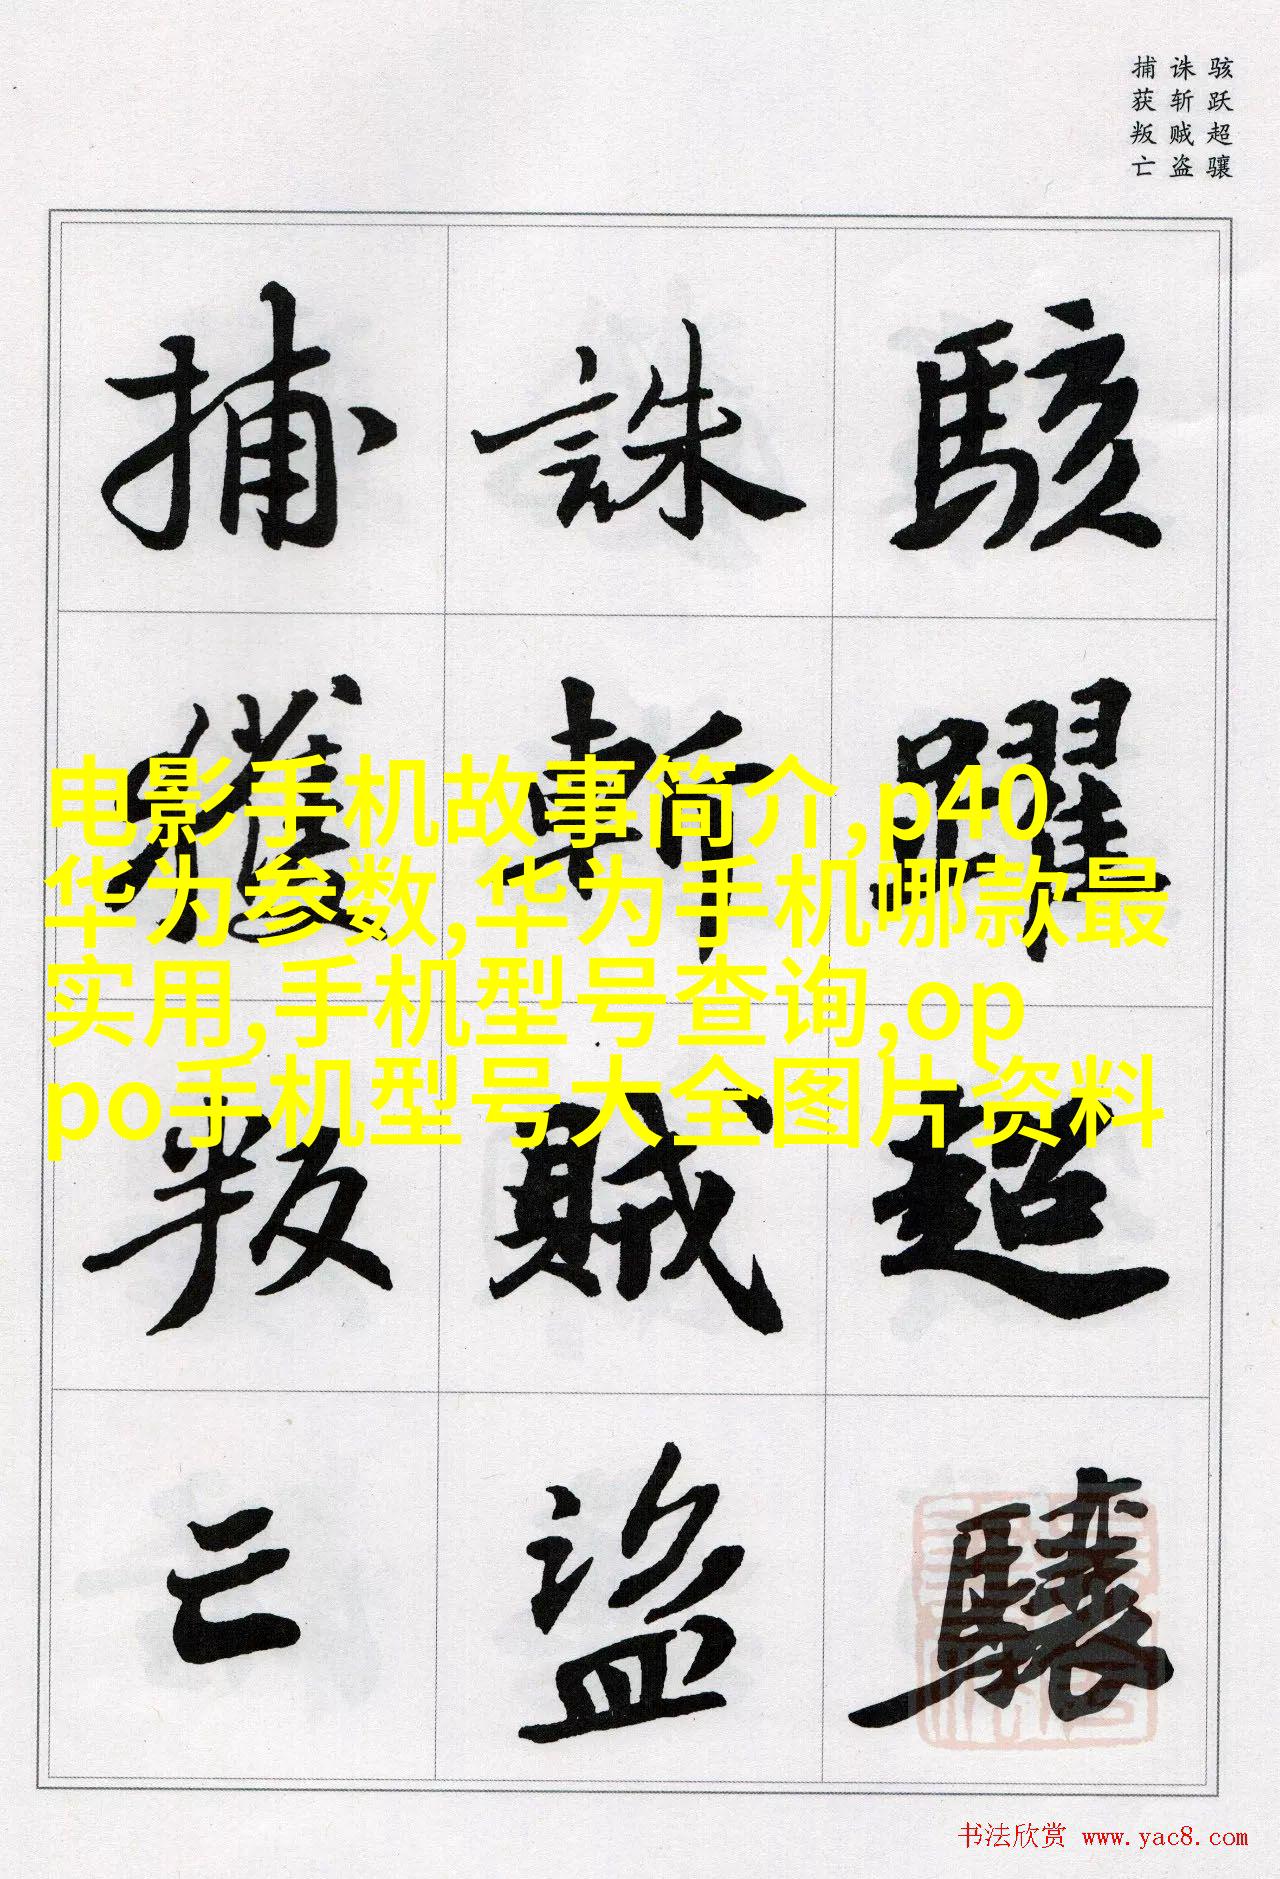 骇跃超骧
诛斩贼盗
捕获叛亡
駭躍超驤
誅斬賊盜
捕獲叛亡
电影手机故事简介,p40
华为参数,华为手机哪款最
实用,手机型号查询,op
po手机型号大全图片资料
书法欣赏 www.yac8.com